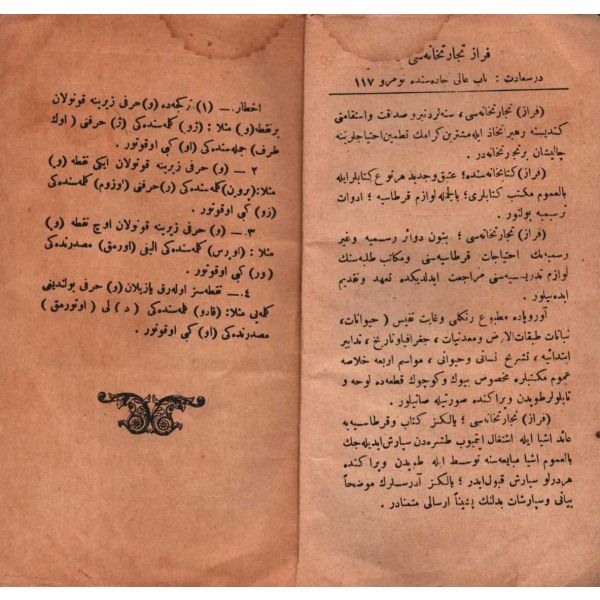 فراز تجارتخانه‌سی
درسعادت : باب عالی جاده‌سنده نومرو ١١٧
(فراز) تجارتخانه‌سی ؛ سنه‌لردنبرو صداقت واستقامتی
کندیسنه رهبر اتخاذ ایله مشترین کرامك قطمین احتیاجلرینه
چالیشان برتجارتخانه‌در .
(فراز) کتابخانه‌سنده ؛ عتیق وجدید هر نوع کتابلر ایله
بالعموم مکتب کتابلری ؛ بالجمله لوازم قرطاسیه ؛ ادوات
ترسیمیه بولنور .
(فراز) تجارتخانه‌سی ؛ بتون دوائر رسمیه وغیر
رسمیه‌نك احتیاجات قرطاسیه‌سنی ومکاتب طلبه‌سنك
لوازم تدریسیه‌سنی مراجعت ایلدیکده تعهد وتقدیم
ایده‌بیلور .
آوروپاده مطبوع رنکلی وغایت نفیس ( حیوانات،
نباتات طبقات‌الارض ومعدنیات ، جغرافیا وتاریخ ، تدابیر
ابتدائیه ، تشریح انسانی وحیوانی ، مواسم اربعه خلاصه
عموم مکتبلره مخصوص بیوك وکوچوك قطعه‌ده لوحه و
تابلولر طوپدن وپراکنده صورتیله صاتیلور .
(فراز) تجارتخانه‌سی ؛ یالکز کتاب وقرطاسیه‌یه
عائد اشیا ایله اشتغال ایتمیوب طشره‌دن سپارش ایدیله‌جك
بالعموم اشیا مبایعه‌سنه توسط ایله طوپدن وپراکنده
هردرلو سپارش قبول ایدر ؛ یالکز آدرسلرك موضحاً
بیانی وسپارشات بدلنك پشیناً ارسالی متمنادر .
اخطار — (١) تركجه‌ده (و) حرفی زیرینه قونولان
برنقطه (و) مثلا : (زو) کلمه‌سنده‌کی (ژ) حرفنی (اوك
طرف) جمله‌سنده‌کی (او) کبی اوقونور .
٢ — (و) حرفی زیرینه قونولان ایکی نقطه (و)
مثلا: (پروین) کلمه‌سنده‌کی (ر) حرفنی (اوزوم) کلمه‌سنده‌کی
(زو) کبی اوقونور .
٣ — (و) حرفی زیرینه قونولان اوچ نقطه (و)
مثلا : (اورس) کلمه‌سنده‌کی الینی (اورمق) مصدرنده‌کی
(ور) کبی اوقونور .
٤ — نقطه‌سز اوله‌رق یازیلان (و) حرفی بولندیغی
کله‌یی مثلا: (قادو) کلمه‌سنده‌کی (د) لی (اوتورمق)
مصدرنده‌کی (او) کبی اوقونور .